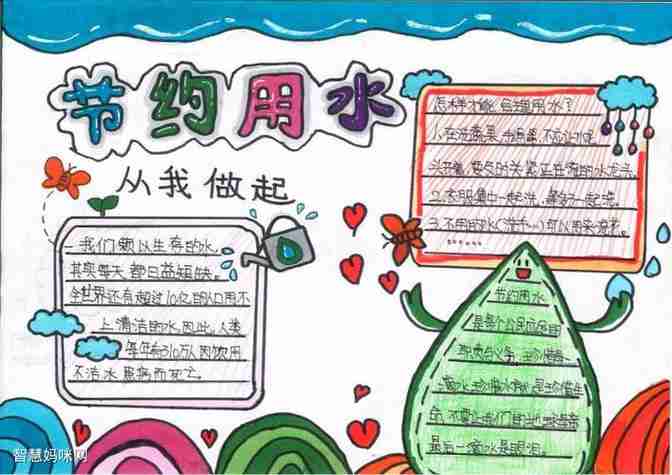 节约用水
从我做起
我们赖以生存的水，
其实每天都日益短缺。
全世界还有超过10亿的人口用不
上清洁的水，因此，人类
每年有310万人因饮用
不洁水患病而死亡。
怎样才能合理用水？
1.在洗蔬果
头开着，要及时关紧正在流的水龙头。
2.衣服集中一起洗，
3.不用的水(洗手…)可以用来浇花。
……
节约用水
是每个公民应尽的
职责与义务，珍惜每一
滴水，珍惜水源就是珍惜生
命，不要让我们
最后一滴水是眼泪。
智慧妈咪网